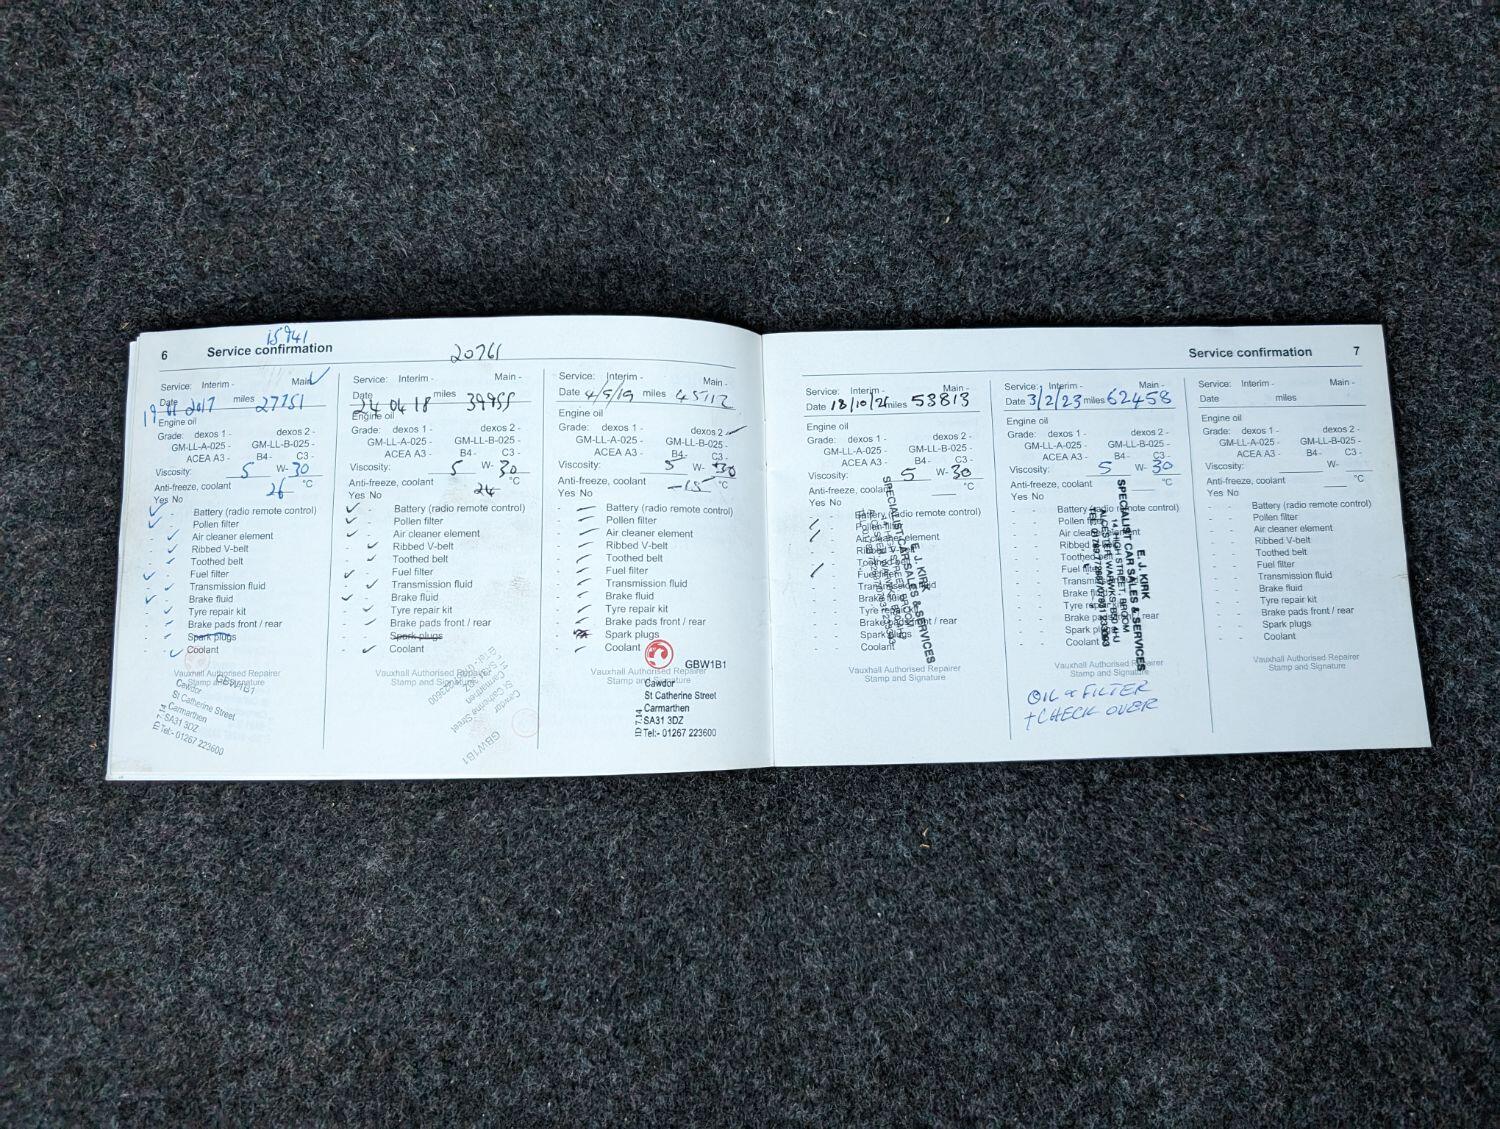 15941
6 Service confirmation
20761
Service: Interim - Main
Date miles 27751
Engine oil
Grade: dexos 1 - dexos 2 -
GM-LL-A-025 - GM-LL-B-025 -
ACEA A3 - B4- C3 -
Viscosity: 5 W- 30
Anti-freeze, coolant 26 °C
Yes No
Battery (radio remote control)
Pollen filter
Air cleaner element
Ribbed V-belt
Toothed belt
Fuel filter
Transmission fluid
Brake fluid
Tyre repair kit
Brake pads front / rear
Spark plugs
Coolant
Vauxhall Authorised Repairer
Stamp and Signature
GBW1B1
Cawdor
St Catherine Street
Carmarthen
SA31 3DZ
Tel:- 01267 223600
ID 7.14
Service: Interim - Main -
Date 24 04 18 miles
Engine oil
Grade: dexos 1 - dexos 2 -
GM-LL-A-025 - GM-LL-B-025 -
ACEA A3 - B4- C3 -
Viscosity: 5 W- 30
Anti-freeze, coolant 24 °C
Yes No
Battery (radio remote control)
Pollen filter
Air cleaner element
Ribbed V-belt
Toothed belt
Fuel filter
Transmission fluid
Brake fluid
Tyre repair kit
Brake pads front / rear
Spark plugs
Coolant
Vauxhall Authorised Repairer
Stamp and Signature
Cawdor
St Catherine Street
Carmarthen
GBW1B1
Service: Interim - Main -
Date 4/5/19 miles 45712
Engine oil
Grade: dexos 1 - dexos 2 -
GM-LL-A-025 - GM-LL-B-025 -
ACEA A3 - B4- C3 -
Viscosity: 5 W- 30
Anti-freeze, coolant -15 °C
Yes No
Battery (radio remote control)
Pollen filter
Air cleaner element
Ribbed V-belt
Toothed belt
Fuel filter
Transmission fluid
Brake fluid
Tyre repair kit
Brake pads front / rear
Spark plugs
Coolant
GBW1B1
Vauxhall Authorised Repairer
Stamp and Signature
Cawdor
St Catherine Street
Carmarthen
SA31 3DZ
Tel:- 01267 223600
ID 7.14
Service confirmation 7
Service: Interim - Main -
Date 18/10/21 miles 53813
Engine oil
Grade: dexos 1 - dexos 2 -
GM-LL-A-025 - GM-LL-B-025 -
ACEA A3 - B4- C3 -
Viscosity: 5 W- 30
Anti-freeze, coolant °C
Yes No
Battery (radio remote control)
Pollen filter
Air cleaner element
Ribbed V-belt
Toothed belt
Fuel filter
Transmission fluid
Brake fluid
Tyre repair kit
Brake pads front / rear
Spark plugs
Coolant
E. J. KIRK
SPECIALIST CAR SALES & SERVICES
Vauxhall Authorised Repairer
Stamp and Signature
Service: Interim - Main -
Date 3/2/23 miles 62458
Engine oil
Grade: dexos 1 - dexos 2 -
GM-LL-A-025 - GM-LL-B-025 -
ACEA A3 - B4- C3 -
Viscosity: 5 W- 30
Anti-freeze, coolant °C
Yes No
Battery (radio remote control)
Pollen filter
Air cleaner element
Ribbed V-belt
Toothed belt
Fuel filter
Transmission fluid
Brake fluid
Tyre repair kit
Brake pads front / rear
Spark plugs
Coolant
E. J. KIRK
SPECIALIST CAR SALES & SERVICES
14 HIGH STREET, BROOM
ALCESTER, WARWKS. B50 4HJ
Vauxhall Authorised Repairer
Stamp and Signature
OIL & FILTER
+ CHECK OVER
Service: Interim - Main -
Date miles
Engine oil
Grade: dexos 1 - dexos 2 -
GM-LL-A-025 - GM-LL-B-025 -
ACEA A3 - B4- C3 -
Viscosity: W-
Anti-freeze, coolant °C
Yes No
Battery (radio remote control)
Pollen filter
Air cleaner element
Ribbed V-belt
Toothed belt
Fuel filter
Transmission fluid
Brake fluid
Tyre repair kit
Brake pads front / rear
Spark plugs
Coolant
Vauxhall Authorised Repairer
Stamp and Signature